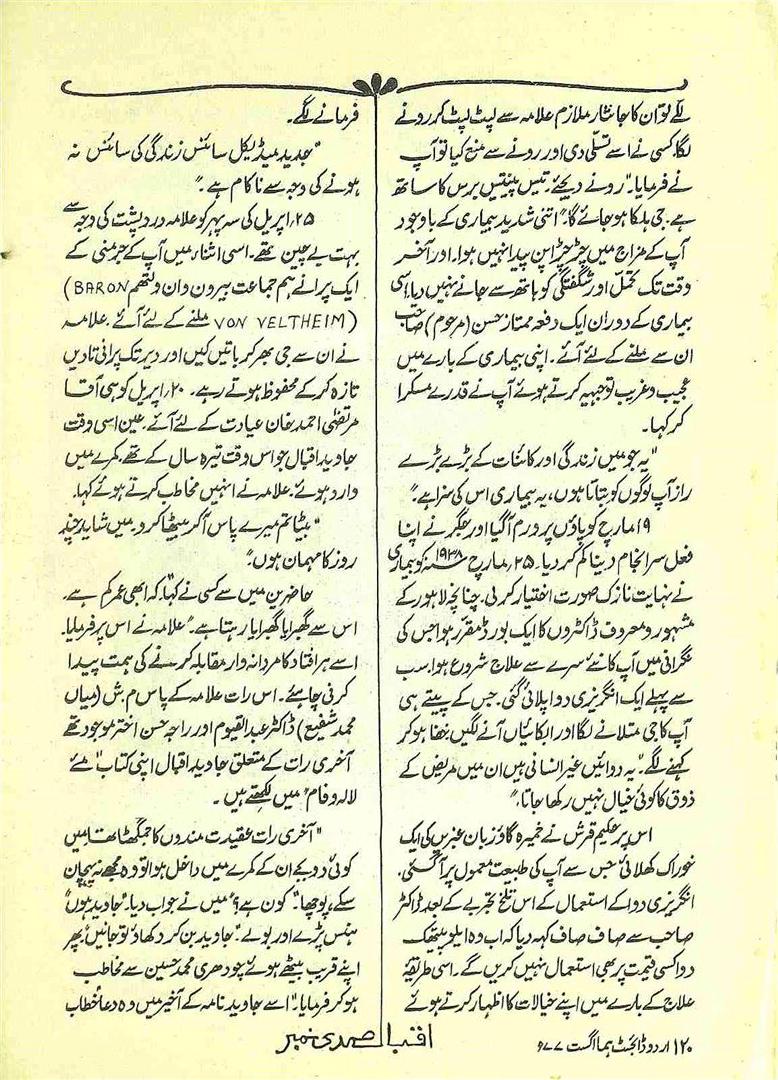 لگے لو ان کا جانثار ملازم علامہ سے لپٹ لپٹ کر رونے
لگا، کسی نے اسے تسلّی دی اور رونے سے منع کیا تو آپ
نے فرمایا۔ "رونے دیجئے۔ تیس پینتیس برس کا ساتھ
ہے۔ جی ہلکا ہو جائے گا"۔ اتنی شدید بیماری کے باوجود
آپ کے مزاج میں چڑچڑا پن پیدا نہیں ہوا۔ اور آخر
وقت تک تحمّل اور شگفتگی کو ہاتھ سے جانے نہیں دیا۔ اسی
بیماری کے دوران ایک دفعہ ممتاز حسن (مرحوم) صاحب
ان سے ملنے کے لئے آئے۔ اپنی بیماری کے بارے میں
عجیب و غریب توجیہہ کرتے ہوئے آپ نے قدرے مسکرا
کر کہا۔
"یہ جو میں زندگی اور کائنات کے بڑے بڑے
راز آپ لوگوں کو بتاتا ہوں، یہ بیماری اس کی سزا ہے۔"
۱۹ مارچ کو پاؤں پر ورم آ گیا اور جگر نے اپنا
فعل سرانجام دینا کم کر دیا۔ ۲۵؍ مارچ ۱۹۳۸ء کو بیماری
نے نہایت نازک صورت اختیار کر لی۔ چنانچہ لاہور کے
مشہور و معروف ڈاکٹروں کا ایک بورڈ مقرر ہوا جس کی
نگرانی میں آپ کا نئے سرے سے علاج شروع ہوا۔ سب
سے پہلے ایک انگریزی دوا پلائی گئی۔ جس کے پیتے ہی
آپ کا جی متلانے لگا اور ابکائیاں آنے لگیں۔ خفا ہو کر
کہنے لگے۔ "یہ دوائیں غیر انسانی ہیں ان میں مریض کے
ذوق کا کوئی خیال نہیں رکھا جاتا"
اس پر حکیم قرشی نے خمیرہ گاؤ زبان عنبریں کی ایک
خوراک کھلائی جس سے آپ کی طبیعت معمول پر آ گئی۔
انگریزی دوا کے استعمال کے اس تلخ تجربے کے بعد ڈاکٹر
صاحب سے صاف صاف کہہ دیا کہ اب وہ ایلوپیتھک
دوا کسی قیمت پر بھی استعمال نہیں کریں گے۔ اسی طریقۂ
علاج کے بارے میں اپنے خیالات کا اظہار کرتے ہوئے
فرمانے لگے۔
"جدید میڈیکل سائنس زندگی کی سائنس نہ
ہونے کی وجہ سے ناکام ہے۔"
۲۵؍ اپریل کی سہ پہر کو علامہ درد پشت کی وجہ سے
بہت بے چین تھے۔ اسی اثناء میں آپ کے جرمنی کے
ایک پرانے ہم جماعت بیرون وان ولتھم (BARON
VON VELTHEIM) ملنے کے لئے آئے۔ علامہ
نے ان سے جی بھر کر باتیں کیں اور دیر تک پرانی یادیں
تازہ کر کے محظوظ ہوتے رہے۔ ۲۰؍ اپریل کو سی آقا
مرتضیٰ احمد خان عیادت کے لئے آئے۔ عین اسی وقت
جاوید اقبال جو اس وقت تیرہ سال کے تھے، کمرے میں
وارد ہوئے۔ علامہ نے انہیں مخاطب کرتے ہوئے کہا۔
"بیٹا تم میرے پاس آ کر بیٹھا کرو۔ میں شاید چند
روز کا مہمان ہوں۔"
حاضرین میں سے کسی نے کہا "کہ ابھی عمر کم ہے۔
اس سے گھبرایا گھبرایا رہتا ہے"۔ علامہ نے اس پر فرمایا۔
اسے ہر افتاد کا مردانہ وار مقابلہ کرنے کی ہمت پیدا
کرنی چاہئے۔ اس رات علامہ کے پاس م ش (میاں
محمد شفیع) ڈاکٹر عبدالقیوم اور راجہ حسن اختر موجود تھے
آخری رات کے متعلق جاوید اقبال اپنی کتاب "مئے
لالہ فام" میں لکھتے ہیں۔
"آخری رات عقیدت مندوں کا جمگھٹا تھا۔ میں
کوئی دو بجے ان کے کمرے میں داخل ہوا تو وہ مجھے نہ پہچان
سکے، پوچھا۔ "کون ہے؟" میں نے جواب دیا۔ "جاوید ہوں"
ہنس پڑے اور بولے۔ "جاوید بن کر دکھاؤ تو جانیں"۔ پھر
اپنے قریب بیٹھے ہوئے چودھری محمد حسین سے مخاطب
ہو کر فرمایا۔ "اسے جاوید نامہ کے آخیر میں وہ دعا خطاب
۱۲۰ اردو ڈائجسٹ ہما اگست ۷۷ء
اقبال صدی نمبر